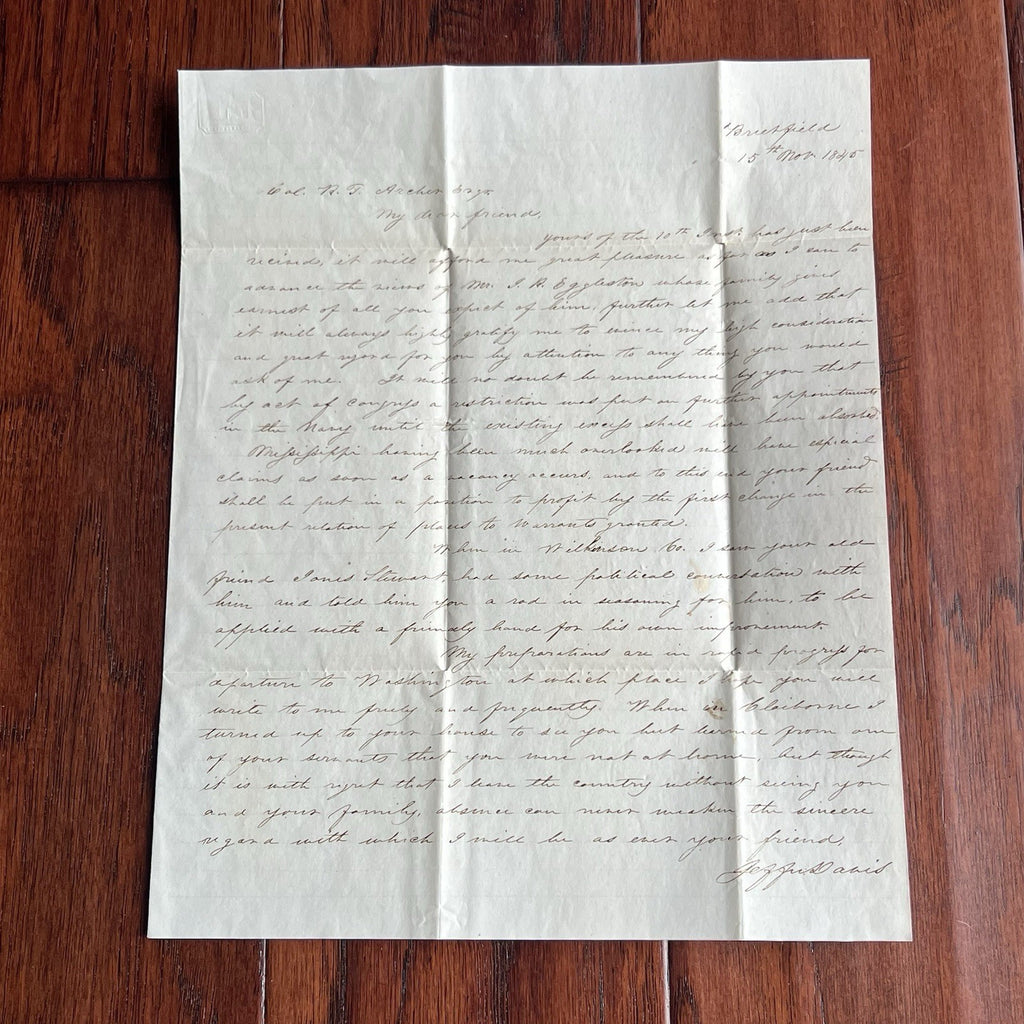 Brierfield
15th Nov. 1845
Col. R. T. Archer Esqr.
My dear friend,
yours of the 10th Inst. has just been
recived, it will afford me great pleasure as far as I can to
advance the views of Mr. J. R. Eggleston whose family gives
earnest of all you expect of him, further let me add that
it will always highly gratify me to evince my high consideration
and great regard for you by attention to any thing you would
ask of me. It will no doubt be remembered by you that
by act of Congress a restriction was put on further appointments
in the Navy until the existing excess shall have been absorbed
Mississippi having been much overlooked will have especial
claims as soon as a vacancy occurs, and to this end your friend
shall be put in a position to profit by the first change in the
present relation of places to warrants granted.
When in Wilkinson Co. I saw your old
friend Jonis Stewart, had some political conversation with
him and told him you a rod in seasoning for him, to be
applied with a friendly hand for his own improvement.
My preparations are in rapid progress for
departure to Washington at which place I hope you will
write to me freely and frequently. When in Claiborne I
turned up to your house to see you but learned from one
of your servants that you were not at home, but though
it is with regret that I leave the country without seeing you
and your family, absence can never weaken the sincere
regard with which I will be as ever your friend,
Jeffn Davis